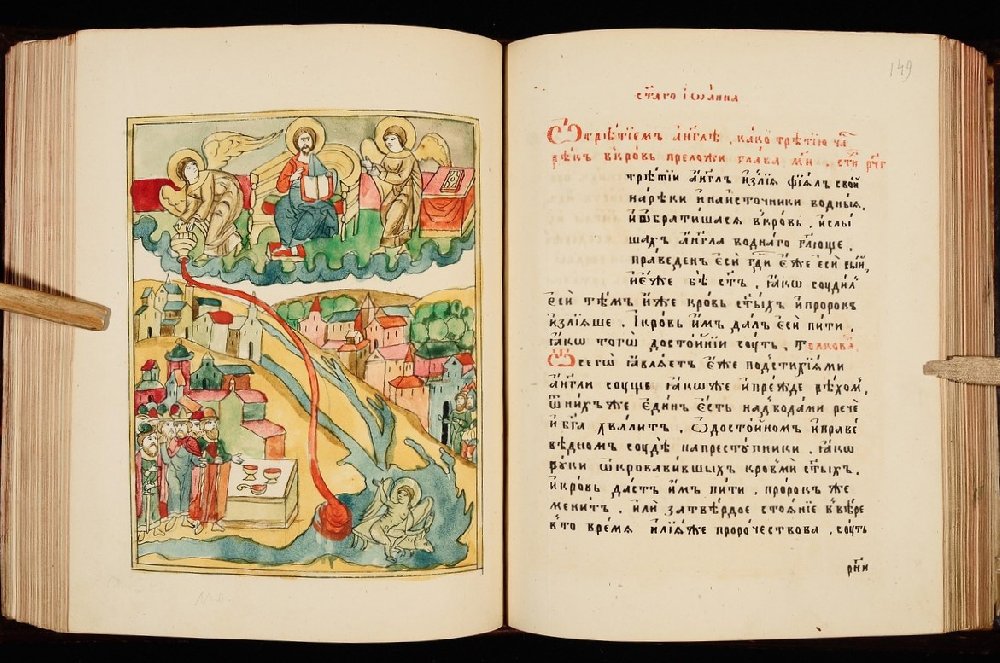 149
ст҃аго іѡанна
Ѡ трѣтїемъ а҆нг҃лѣ, какѡ трѣтїю ча҆
рѣкъ в̾кровь преложи глава м҃и. ст҃и
трѣтїи а҆нг҃лъ и҆злїѧ фїалъ свой
на рѣки и҆ на источники водныѧ,
и҆ ѡ҆братишасѧ в̾кровь, и҆ слы
шахъ а҆нг҃ла воднаго гл҃юще,
праведенъ є҆си гд҇и є҆же є҆си вый,
и҆ є҆же бѣ ст҃ъ, ꙗ҆кѡ сꙋдилъ
є҆си тѣмъ и҆же кровь ст҃ыхъ и҆ пророк
и҆злїѧше, і҆ кровь и҆мъ далъ є҆си пити,
ꙗ҆кѡ тогѡ достойнїи сꙋть, толкова
Ѡ сегѡ ꙗ҆влѧетъ є҆же под̾стихїѧми
а҆нг҃ли сꙋще ꙗ҆коже и҆ прежде рѣхом̾,
ѿ них̾ же є҆динъ є҆сть над̾водами рече
и҆ бг҃а хвалитъ, ѡ҆ достойном и҆ прав
вѣдном сꙋдѣ на престꙋпники, ꙗ҆кѡ
рꙋки ѡ҆кровавившыхъ кровми ст҃ыхъ,
и҆ кровь дастъ и҆мъ пити, пророк же
менит, и҆ли за твердое стоѧнїе в̾ вѣре
в̾ то времѧ и҆лїѧ же пророчествова, сꙋть
рн҃и